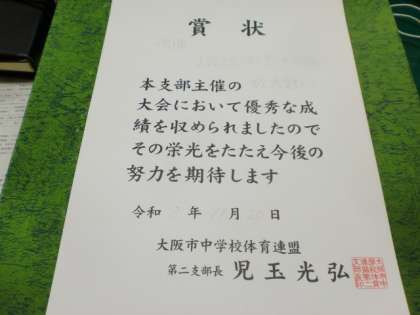 賞状
本支部主催の
大会において優秀な成
績を収められましたので
その栄光をたたえ今後の
努力を期待します
令和 年 月 日
大阪市中学校体育連盟
第二支部長 児玉光弘